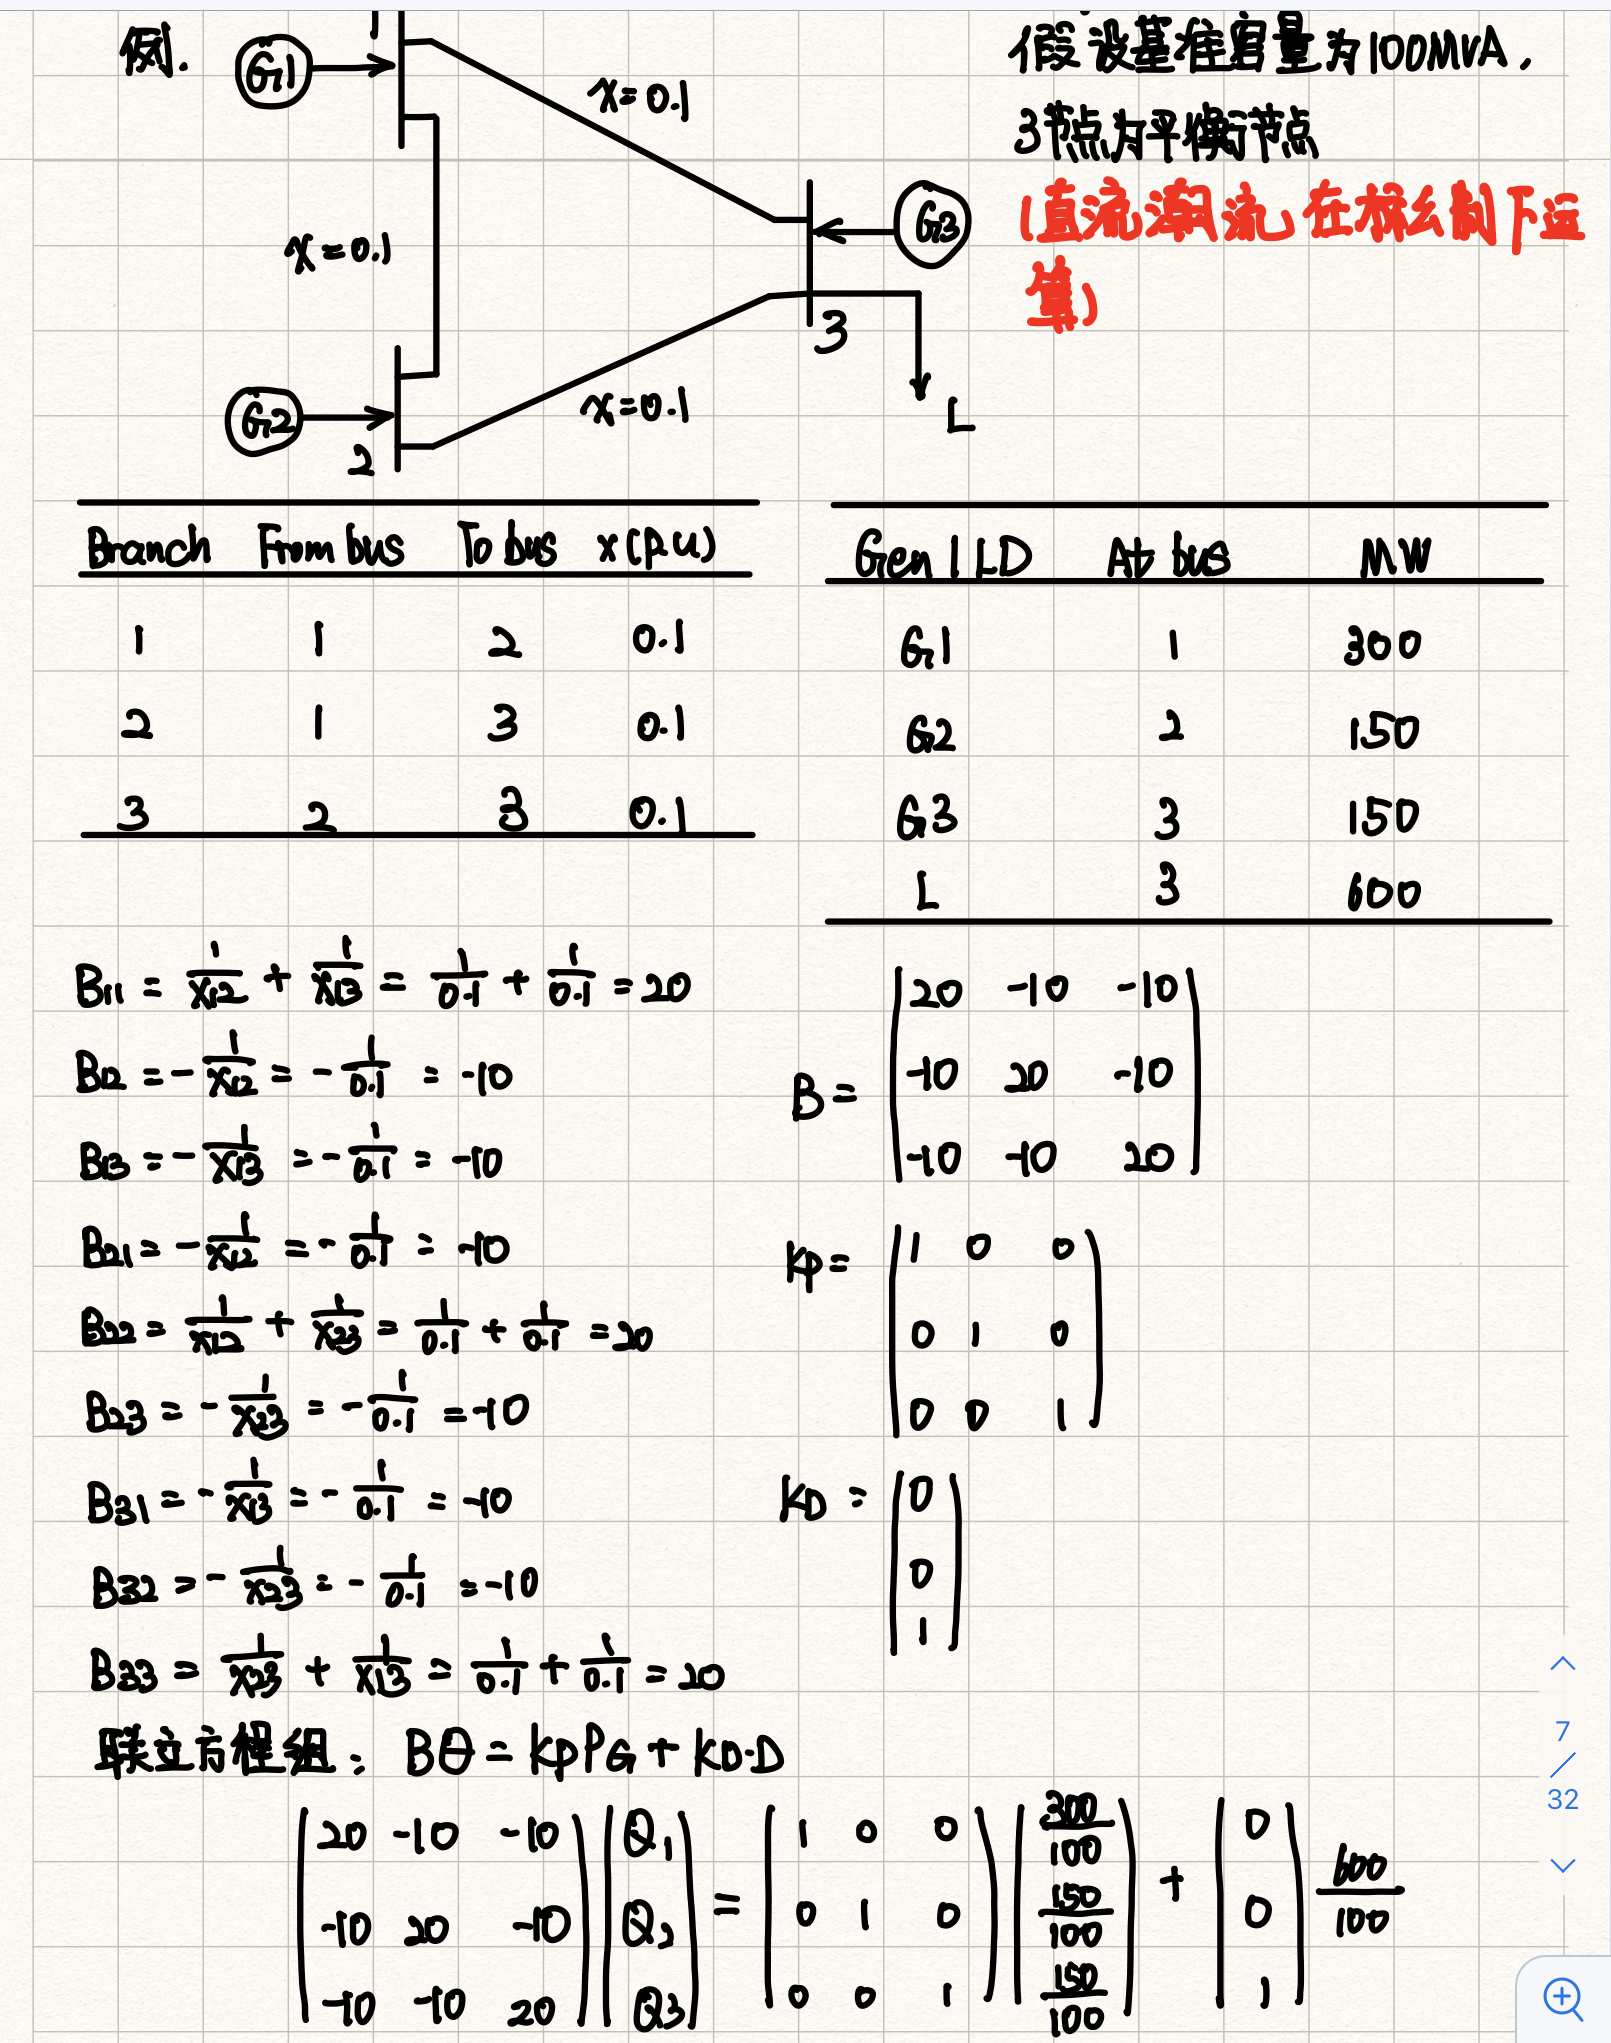 例.
1
G1
x=0.1
假设基准容量为100MVA,
3节点为平衡节点
(直流潮流在标幺制下运
算)
x=0.1
G3
3
x=0.1
L
G2
2
Branch From bus To bus x(p.u)
1 1 2 0.1
2 1 3 0.1
3 2 3 0.1
Gen | LD At bus MW
G1 1 300
G2 2 150
G3 3 150
L 3 600
B11 = 1/X12 + 1/X13 = 1/0.1 + 1/0.1 = 20
B12 = -1/X12 = -1/0.1 = -10
B13 = -1/X13 = -1/0.1 = -10
B21 = -1/X12 = -1/0.1 = -10
B22 = 1/X12 + 1/X23 = 1/0.1 + 1/0.1 = 20
B23 = -1/X23 = -1/0.1 = -10
B31 = -1/X13 = -1/0.1 = -10
B32 = -1/X23 = -1/0.1 = -10
B33 = 1/X23 + 1/X13 = 1/0.1 + 1/0.1 = 20
20 -10 -10
B = -10 20 -10
-10 -10 20
KP = 1 0 0
0 1 0
0 0 1
KD = 0
0
1
联立方程组: Bθ = KP PG + KD·D
20 -10 -10 Q1 1 0 0 300/100 0
-10 20 -10 Q2 = 0 1 0 150/100 + 0 600/100
-10 -10 20 Q3 0 0 1 150/100 1
7
/
32